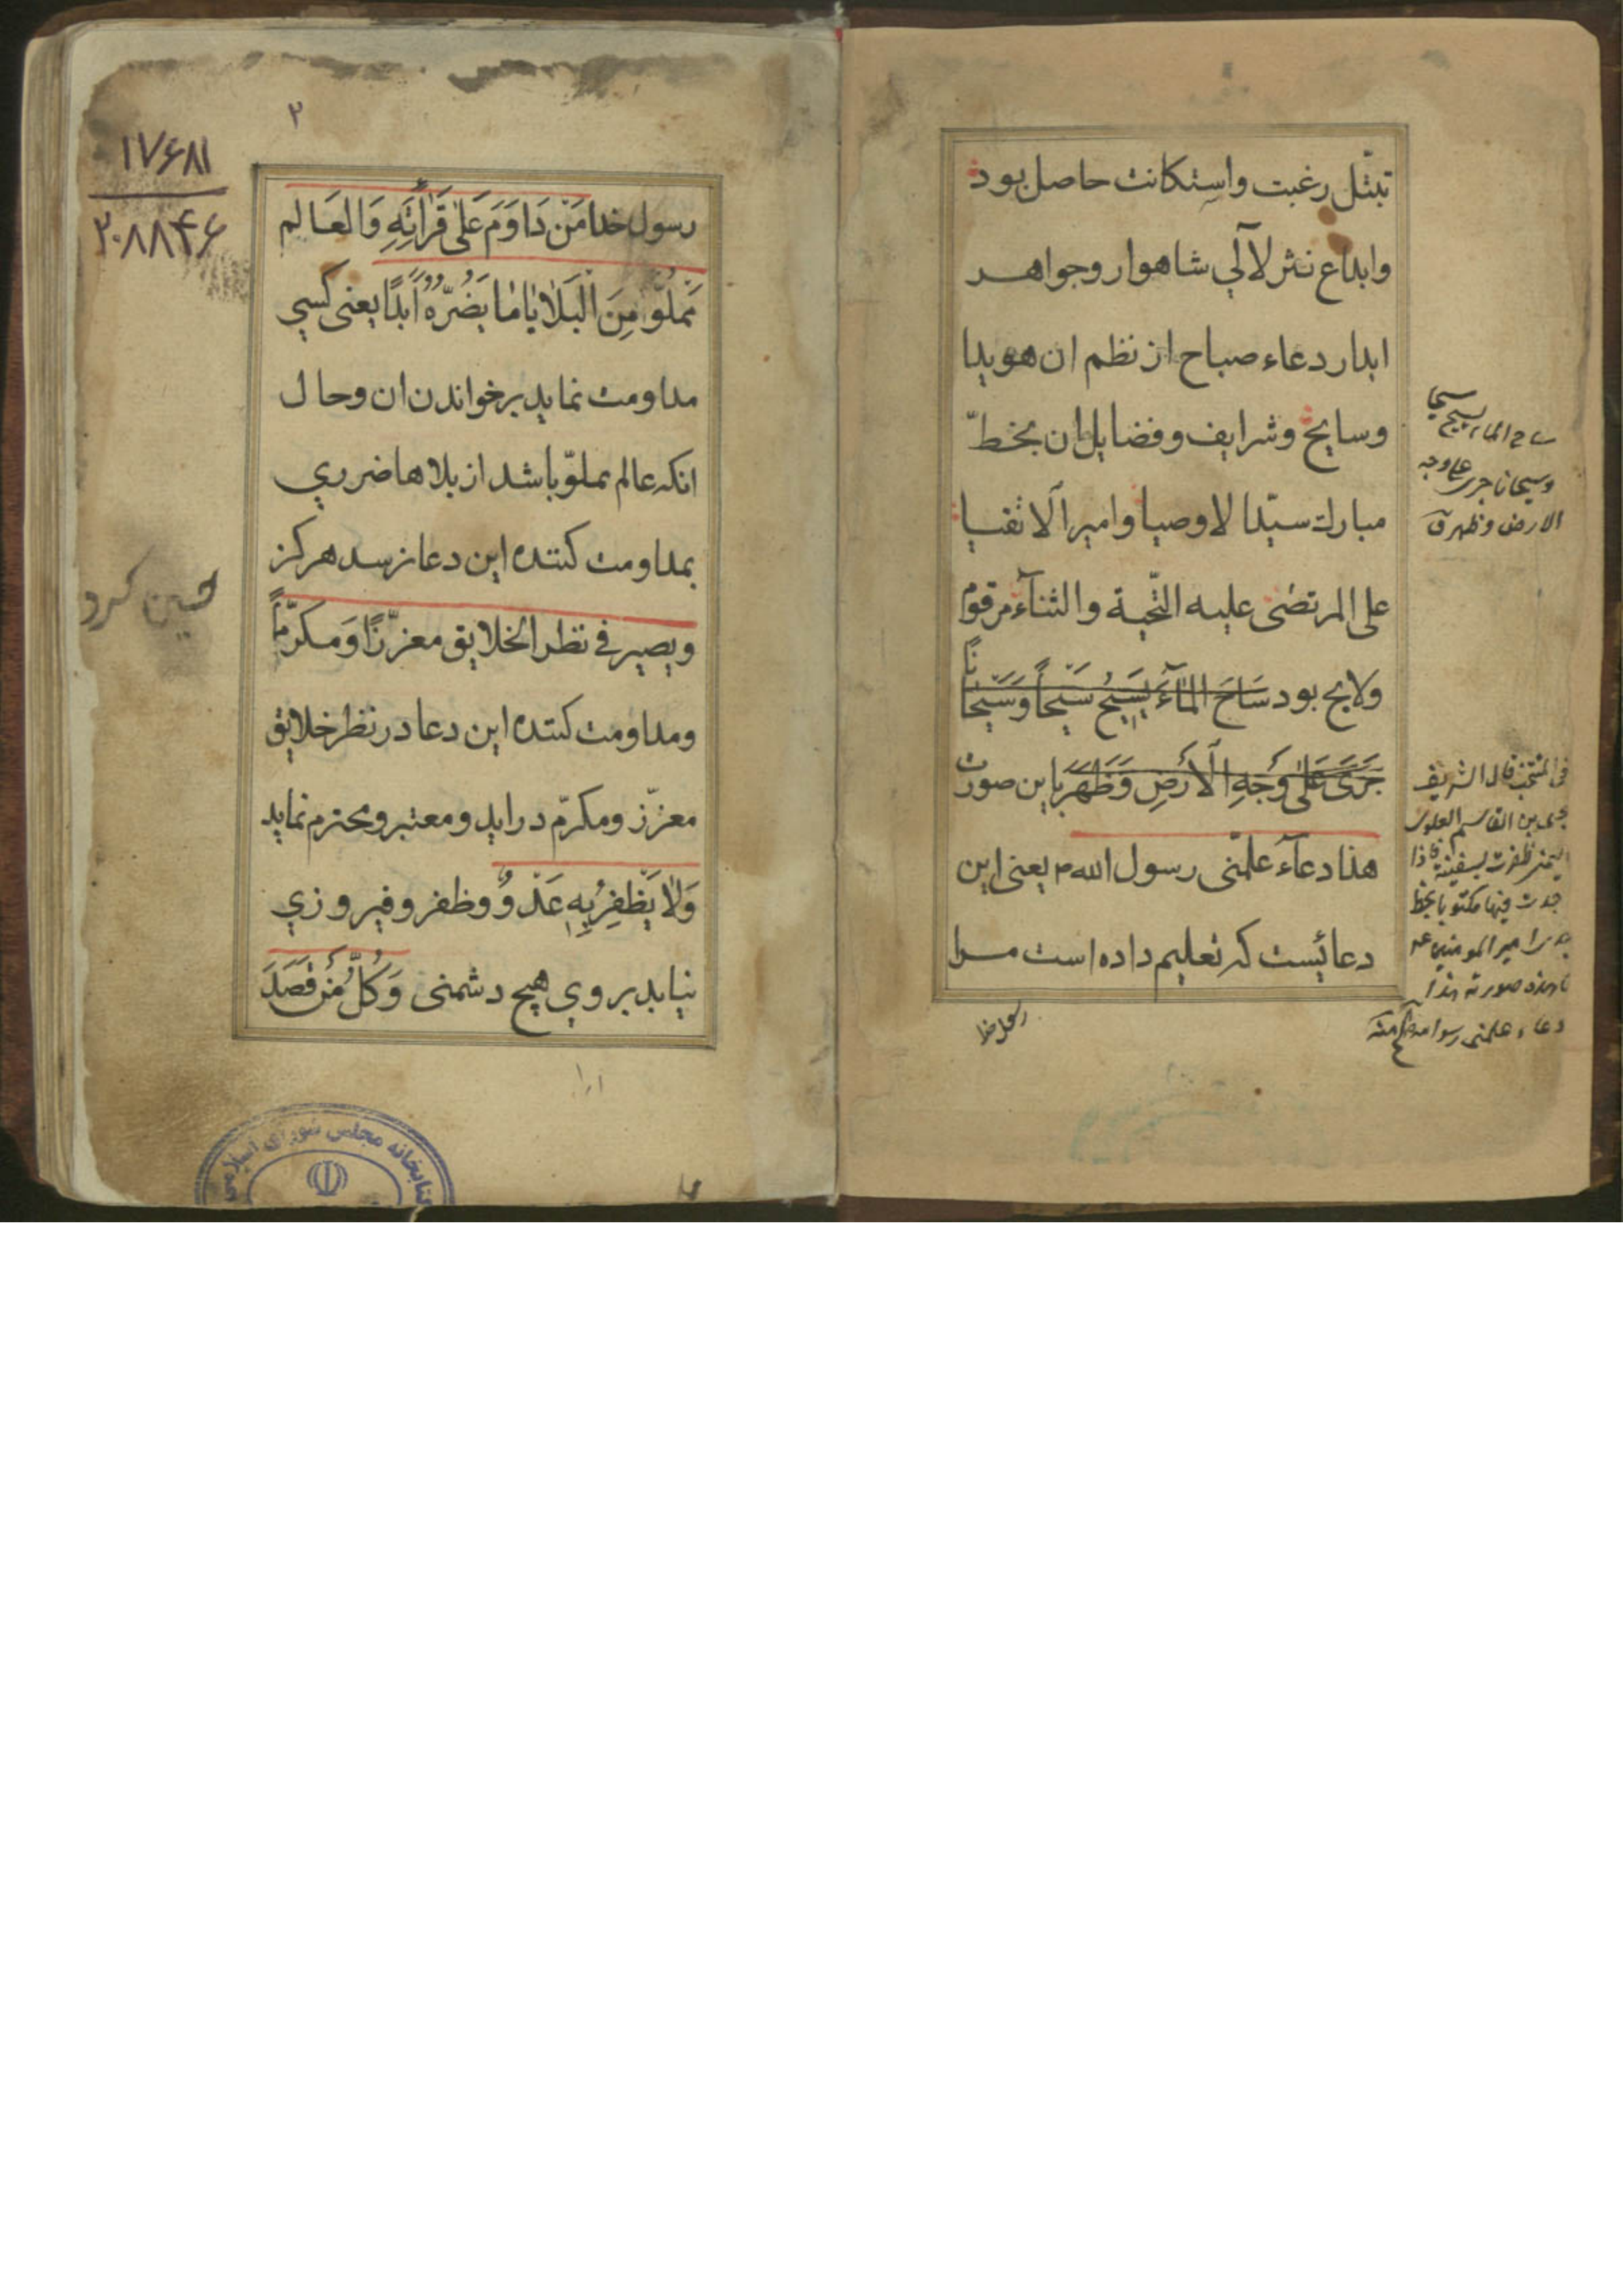 تبتّل رغبت واستكانت حاصل بود
وابداع نثر لآلي شاهوار وجواهر
ابدار دعاء صباح از نظم ان هويدا
وسايح وشرايف وفضايل ان بخطّ
مبارك سيّد الاوصيا وامير الاتقيا
على المرتضى عليه التّحية والثنآء مرقوم
ولايح بود سَاحَ المآءَ يَسِيحُ سَيْحاً وَسَيَحٰاناً
جَرَىٰ عَلىٰ وَجْهِ الْاَرْضِ وَظَهَرَ باين صورت
هذا دعآء علّمنى رسول الله ص يعنى اين
دعائيست كه تعليم داده است مرا
رسول خدا
ساح الماء يسيح سيحا
وسيحانا جرى على وجه
الارض وظهر ق
فى المنتخب قال الشريف
يحيى بن القاسم العلوى
ظفرت بسفينة فاذا
جدت فيها مكتوبا بخط
امير المومنين ع
ما هذه صورته هذا
دعاء علمنى رسول الله منه
٢
١٧۶٨١
٢٠٨٨۴۶
رسول خدا مَنْ دَاوَمَ عَلىٰ قَرٰأتِهِ وَالعَالم
مَملُوّ مِنَ الْبَلاٰيٰا مٰا يَضُرّهُ اَبَدًا يعنى كسي
مداومت نمايد بر خواندن ان وحال
انكه عالم مملوّ باشد از بلاها ضرري
بمداومت كننده اين دعا نرسد هركز
ويصير فى نظر الخلايق معزّزًا وَمكرّماً
ومداومت كننده اين دعا در نظر خلايق
معزّز ومكرّم درايد ومعتبر ومحترم نمايد
وَلاٰ يَظْفِرُ بِهِ عَدُوٌّ وظفر وفيروزي
نيابد بر وي هيچ دشمنى وَكُلُّ مَنْ قَصَدَ
حسين كرد
كتابخانه مجلس شورای اسلامی